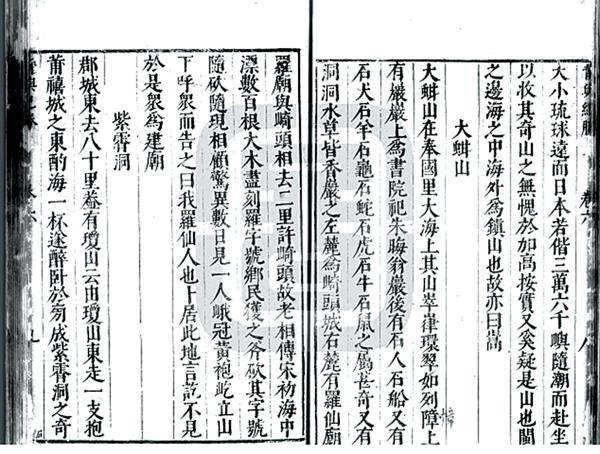 大小琉球遠而日本若偕三萬六千嶼隨潮而赴坐
以收其奇山之無愧於加高按實又奚疑是山也關
之邊海之中海外爲鎮山也故亦曰嵩
大蚶山
大蚶山在奉國里大海上其山崒嵂環翠如列障上
有巖巖上爲書院祀朱晦翁巖後有石人石船又有
石犬石羊石龜石蛇石虎石牛石鼠之屬甚奇又有
洞洞水草皆香巖之左麓爲崎頭城右麓有羅仙廟
羅廟與崎頭相去二里許崎頭故老相傳宋初海中
漂數百根大木盡刻羅字號鄉民獲之斧砍其字號
隨砍隨現相顧驚異數日見一人峨冠黃袍屹立山
下呼衆而告之曰我羅仙人也卜居此地言訖不見
於是衆爲建廟
紫霄洞
郡城東去八十里蓋有瓊山云由瓊山東走一支抱
莆禧城之東酌海一杯遂醉卧於右成紫霄洞之奇